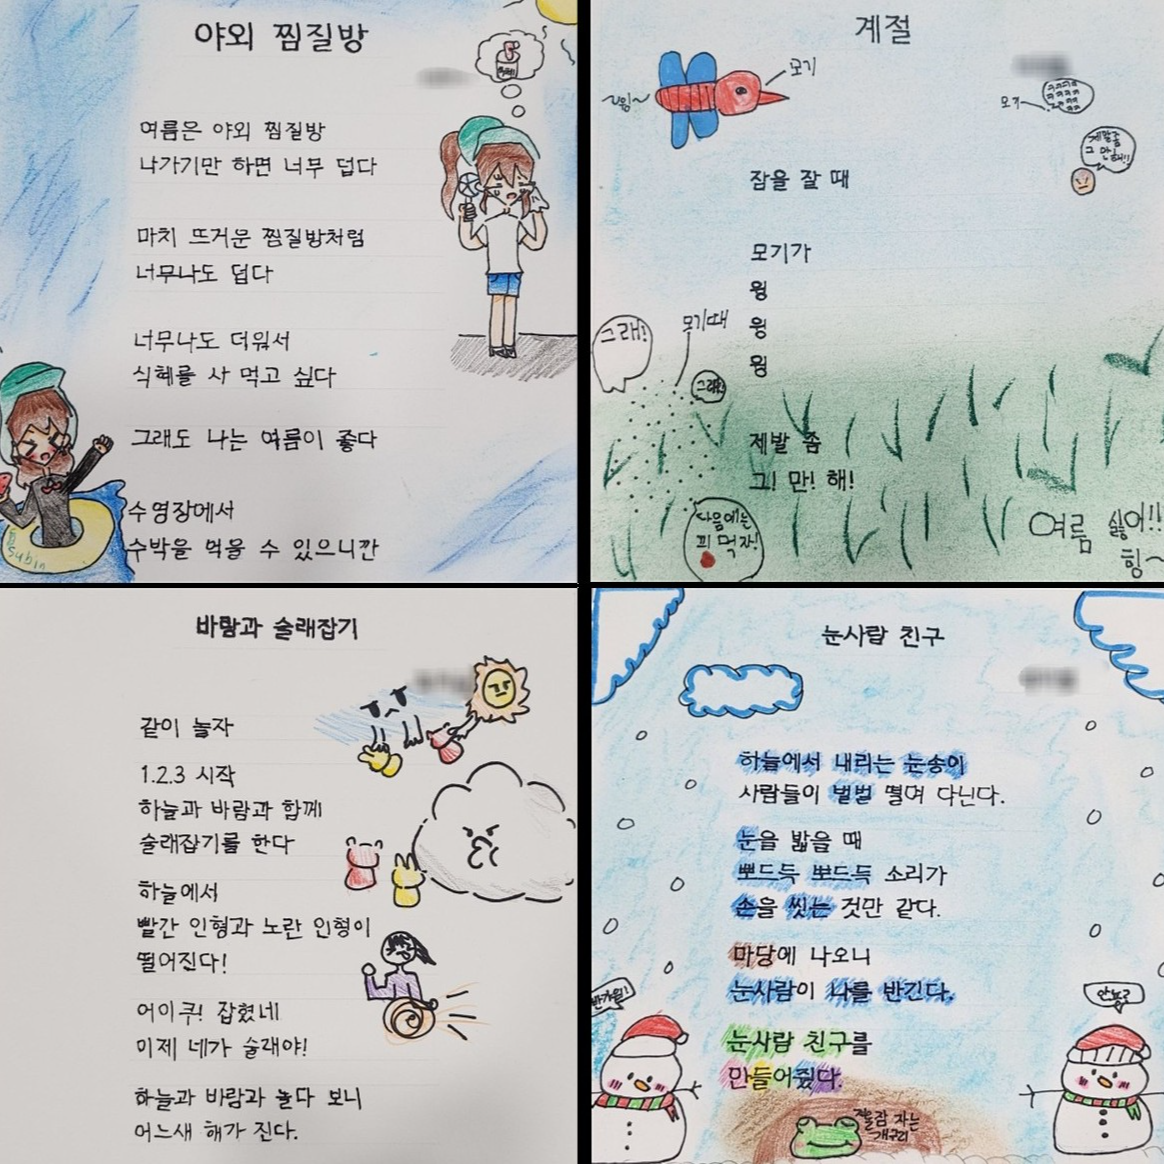 야외 찜질방
식혜
여름은 야외 찜질방
나가기만 하면 너무 덥다
마치 뜨거운 찜질방처럼
너무나도 덥다
너무나도 더워서
식혜를 사 먹고 싶다
그래도 나는 여름이 좋다
수영장에서
수박을 먹을 수 있으니깐
Subin
계절
모기
위잉~
모기
제발좀
그만해!!
잠을 잘 때
모기가
윙
윙
윙
그래!
모기떼
그래!
제발 좀
그! 만! 해!
다음에는
피 먹자!
여름 싫어!!
힝~
바람과 술래잡기
같이 놀자
1.2.3 시작
하늘과 바람과 함께
술래잡기를 한다
하늘에서
빨간 인형과 노란 인형이
떨어진다!
어이쿠! 잡혔네
이제 네가 술래야!
하늘과 바람과 놀다 보니
어느새 해가 진다.
눈사람 친구
하늘에서 내리는 눈송이
사람들이 벌벌 떨며 다닌다.
눈을 밟을 때
뽀드득 뽀드득 소리가
손을 씻는 것만 같다.
마당에 나오니
눈사람이 나를 반긴다.
반가워!
안녕?
눈사람 친구를
만들어줬다.
겨울잠 자는
개구리